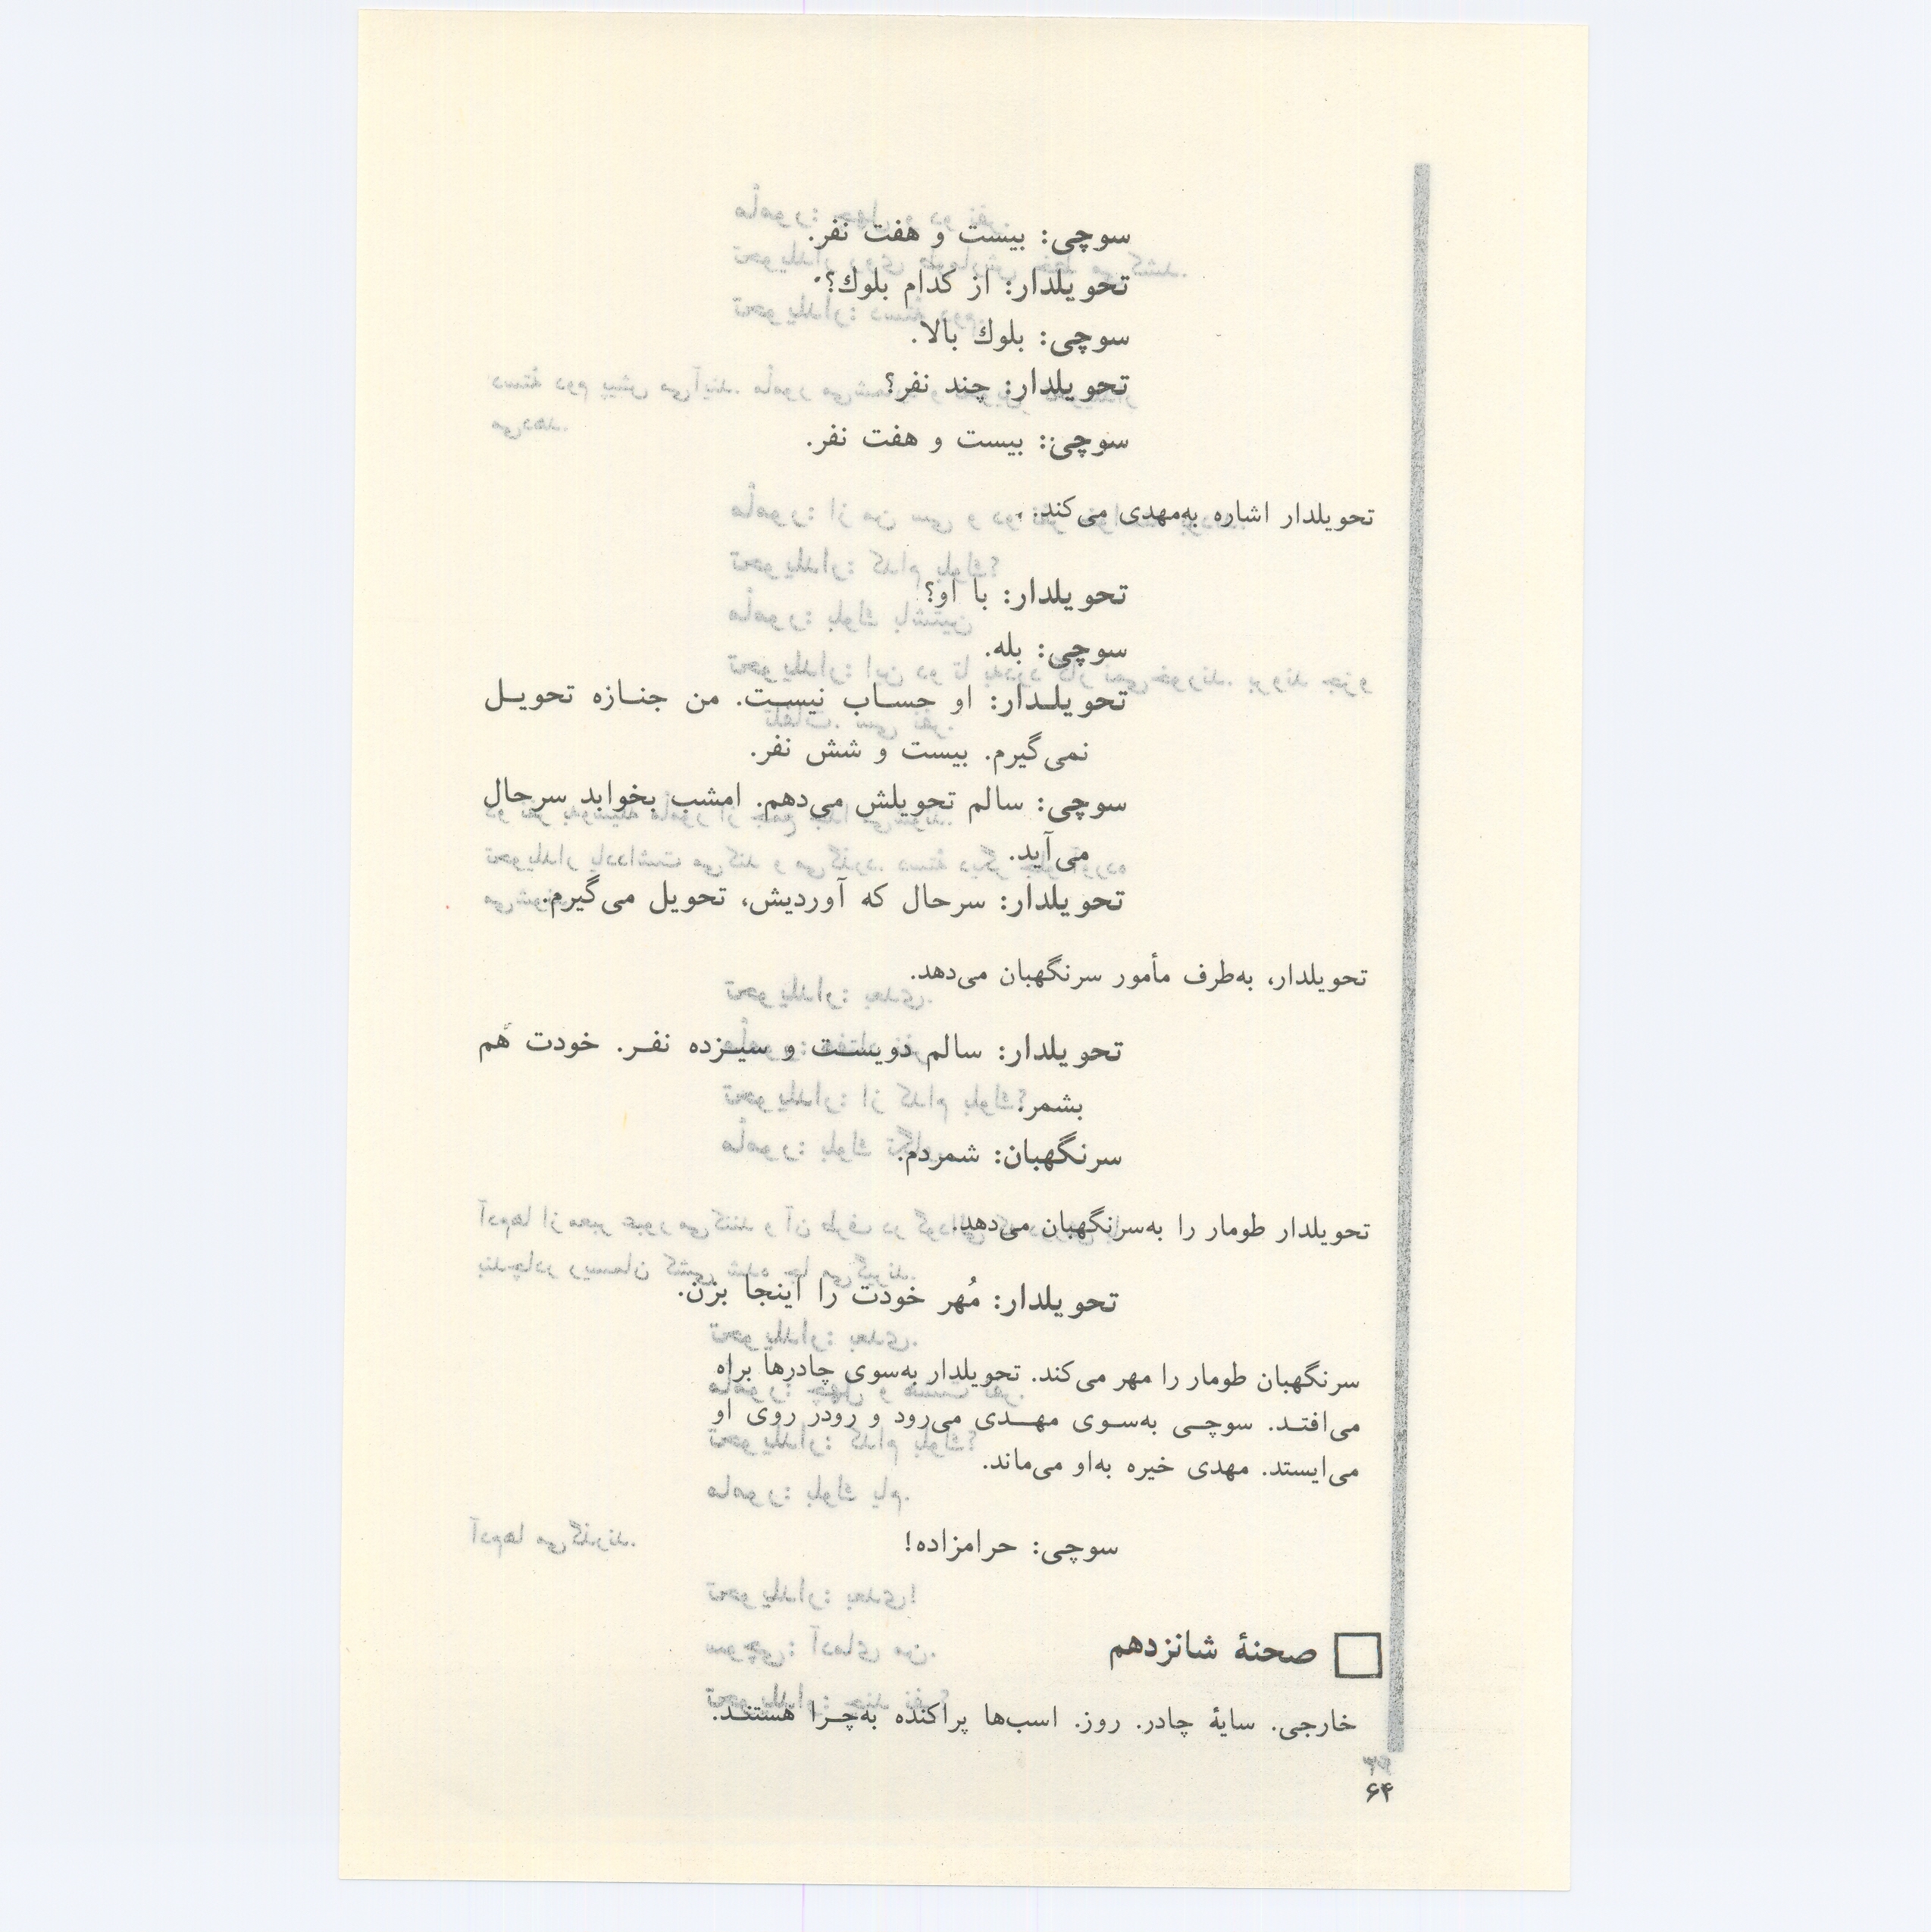 سوچی: بیست و هفت نفر.
تحویلدار: از کدام بلوك؟
سوچی: بلوك بالا.
تحویلدار: چند نفر؟
سوچی: بیست و هفت نفر.
تحویلدار اشاره به‌مهدی می‌کند.
تحویلدار: با او؟
سوچی: بله.
تحویلدار: او حساب نیست. من جنازه تحویل
نمی‌گیرم. بیست و شش نفر.
سوچی: سالم تحویلش می‌دهم. امشب بخوابد سرحال
می‌آید.
تحویلدار: سرحال که آوردیش، تحویل می‌گیرم.
تحویلدار، به‌طرف مأمور سرنگهبان می‌دهد.
تحویلدار: سالم دویست و سیزده نفر. خودت هم
بشمر.
سرنگهبان: شمردم.
تحویلدار طومار را به‌سرنگهبان می‌دهد.
تحویلدار: مُهر خودت را اینجا بزن.
سرنگهبان طومار را مهر می‌کند. تحویلدار به‌سوی چادرها براه
می‌افتد. سوچی به‌سوی مهدی می‌رود و رودر روی او
می‌ایستد. مهدی خیره به‌او می‌ماند.
سوچی: حرامزاده!
صحنهٔ شانزدهم
خارجی. سایهٔ چادر. روز. اسب‌ها پراکنده به‌چرا هستند.
۶۴